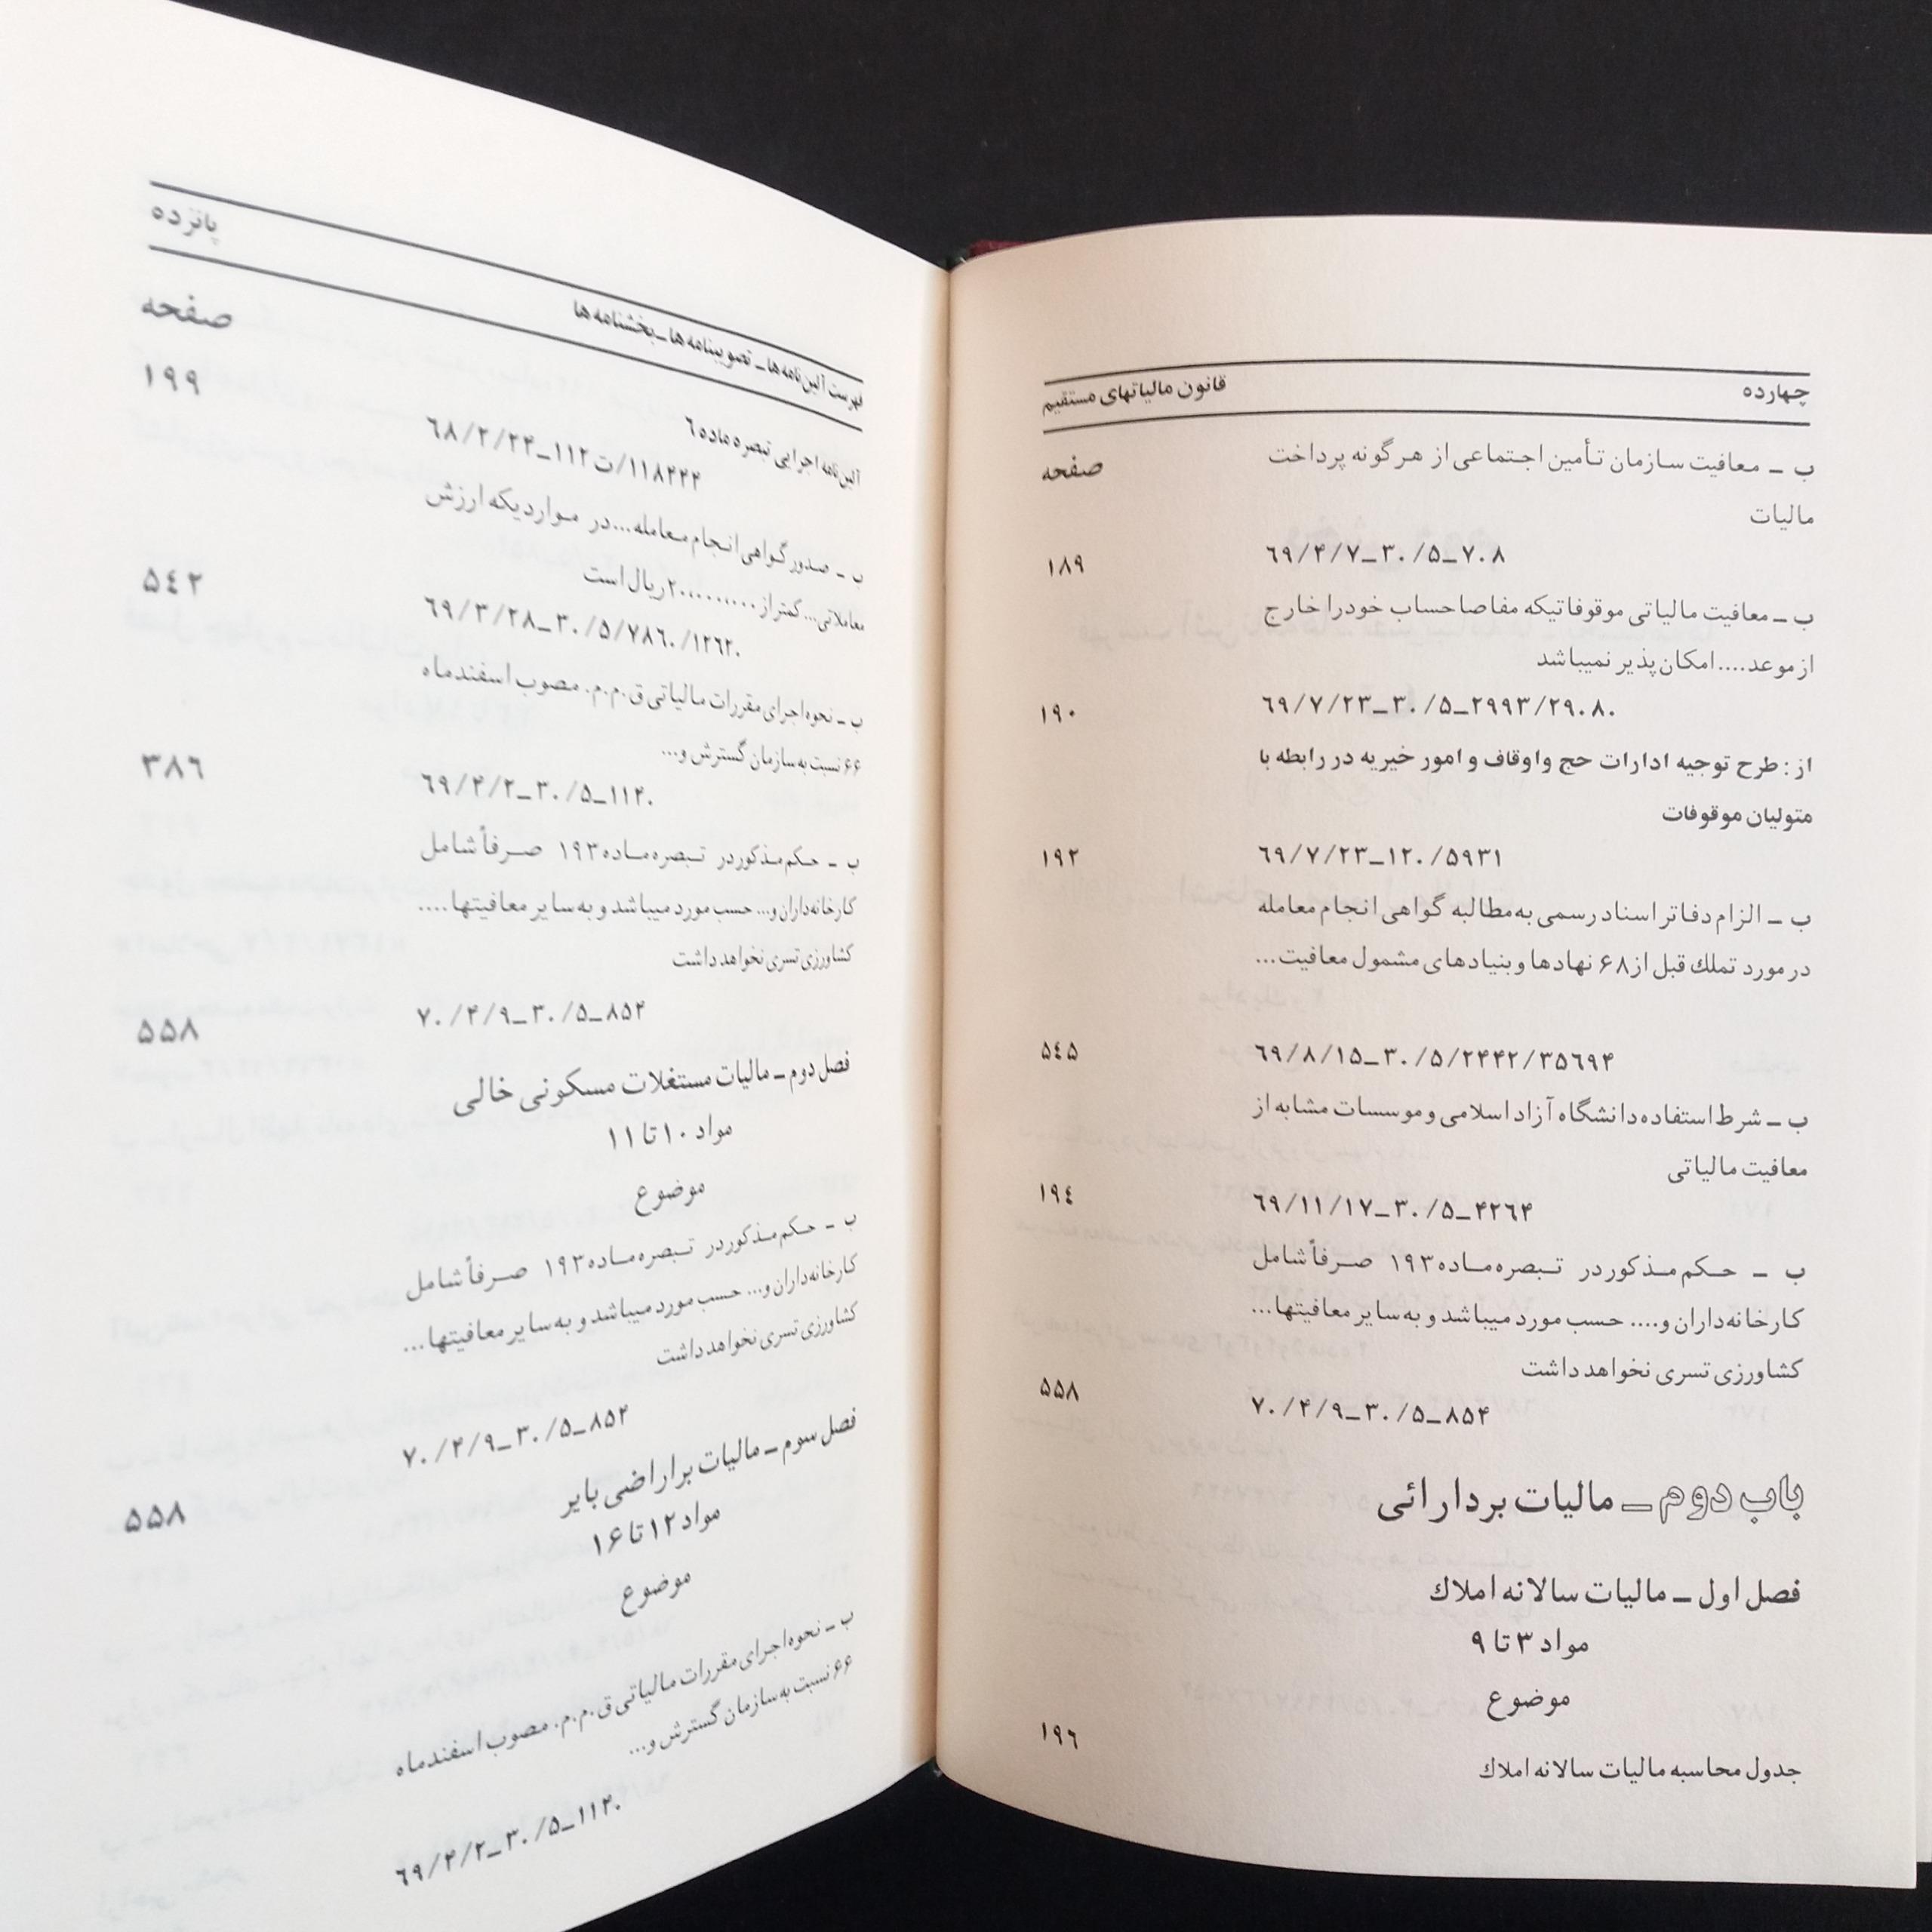 چهارده
قانون مالیاتهای مستقیم
صفحه
ب ـ معافیت سازمان تأمین اجتماعی از هرگونه پرداخت
مالیات
۶۹/۴/۷ـ۳۰/۵ـ۷۰۸
۱۸۹
ب ـ معافیت مالیاتی موقوفاتیکه مفاصا حساب خود را خارج
از موعد.... امکان پذیر نمیباشد
۶۹/۷/۲۳ـ۳۰/۵ـ۲۹۹۳/۲۹۰۸۰
۱۹۰
از: طرح توجیه ادارات حج و اوقاف و امور خیریه در رابطه با
متولیان موقوفات
۶۹/۷/۲۳ـ۱۲۰/۵۹۳۱
۱۹۲
ب ـ الزام دفاتر اسناد رسمی به مطالبه گواهی انجام معامله
در مورد تملك قبل از ۶۸ نهادها و بنیادهای مشمول معافیت...
۶۹/۸/۱۵ـ۳۰/۵/۲۴۴۲/۳۵۶۹۴
۵۴۵
ب ـ شرط استفاده دانشگاه آزاد اسلامی و موسسات مشابه از
معافیت مالیاتی
۶۹/۱۱/۱۷ـ۳۰/۵ـ۴۲۶۴
۱۹۴
ب ـ حکم مذکور در تبصره ماده ۱۹۳ صرفاً شامل
کارخانه داران و.... حسب مورد میباشد و به سایر معافیتها...
کشاورزی تسری نخواهد داشت
۷۰/۴/۹ـ۳۰/۵ـ۸۵۴
۵۵۸
باب دوم ـ مالیات بر دارائی
فصل اول ـ مالیات سالانه املاك
مواد ۳ تا ۹
موضوع
جدول محاسبه مالیات سالانه املاك
۱۹۶
پانزده
فهرست آئین نامه ها ـ تصویبنامه ها ـ بخشنامه ها
صفحه
آئین نامه اجرایی تبصره ماده ۶
۶۸/۲/۲۴ـ۱۱۸۴۴۴/ت۱۱۲
۱۹۹
ب ـ صدور گواهی انجام معامله... در مواردیکه ارزش
معاملاتی... کمتر از ۲۰۰۰۰۰۰۰۰ ریال است
۶۹/۳/۲۸ـ۳۰/۵/۷۸۶۰/۱۲۶۲۰
۵۴۲
ب ـ نحوه اجرای مقررات مالیاتی ق.م.م. مصوب اسفندماه
۶۶ نسبت به سازمان گسترش و...
۶۹/۴/۲ـ۳۰/۵ـ۱۱۲۰
۳۸۶
ب ـ حکم مذکور در تبصره ماده ۱۹۳ صرفاً شامل
کارخانه داران و... حسب مورد میباشد و به سایر معافیتها....
کشاورزی تسری نخواهد داشت
۷۰/۴/۹ـ۳۰/۵ـ۸۵۴
۵۵۸
فصل دوم ـ مالیات مستغلات مسکونی خالی
مواد ۱۰ تا ۱۱
موضوع
ب ـ حکم مذکور در تبصره ماده ۱۹۳ صرفاً شامل
کارخانه داران و... حسب مورد میباشد و به سایر معافیتها...
کشاورزی تسری نخواهد داشت
۷۰/۴/۹ـ۳۰/۵ـ۸۵۴
۵۵۸
فصل سوم ـ مالیات بر اراضی بایر
مواد ۱۲ تا ۱۶
موضوع
ب ـ نحوه اجرای مقررات مالیاتی ق.م.م. مصوب اسفندماه
۶۶ نسبت به سازمان گسترش و...
۶۹/۴/۲ـ۳۰/۵ـ۱۱۲۰